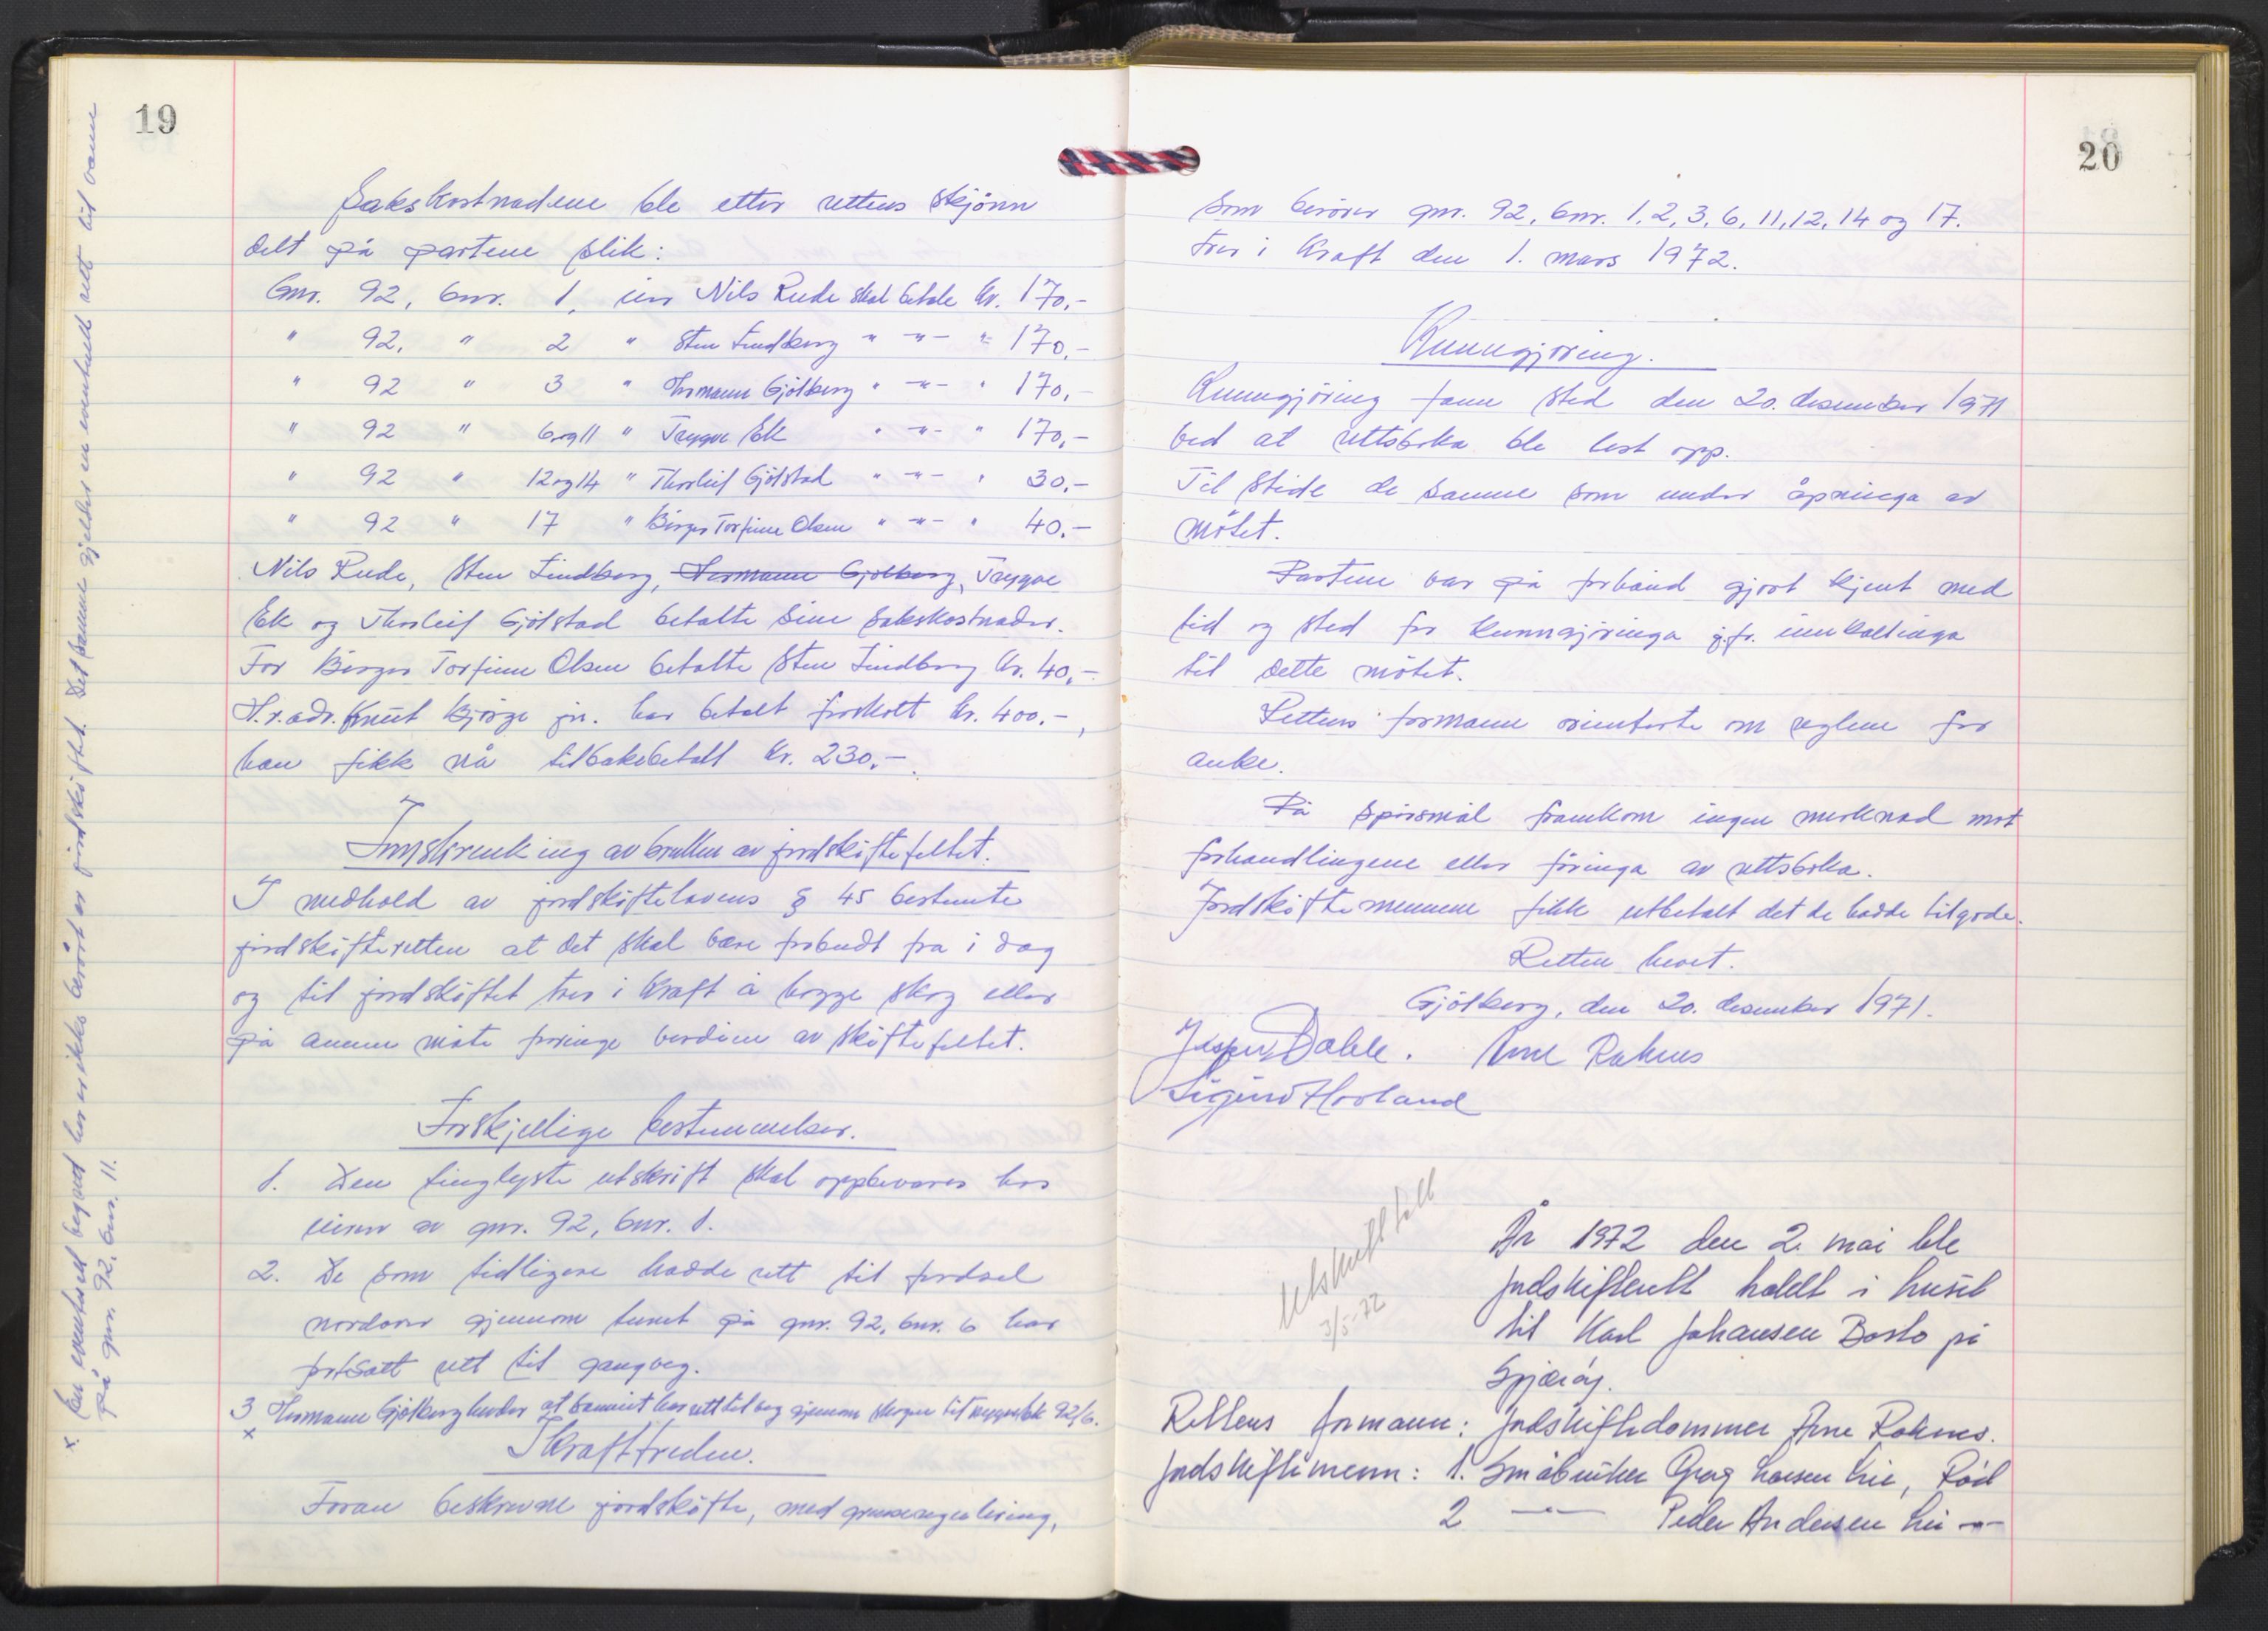 19
Sakskostnadene ble etter rettens skjönn
delt på partene slik:
Gnr. 92, bnr. 1, eier Nils Rude skal betale kr. 170.-
" 92, " 2 " Sten Lindberg " -"- " 170.-
" 92 " 3 " Hermann Gjölberg " -"- " 170.-
" 92 " 6 og 11 " Trygve Ek " -"- " 170.-
" 92 " 12 og 14 " Thorleif Gjölstad " -"- " 30.-
" 92 " 17 " Birger Torfinn Olsen " -"- " 40.-
Nils Rude, Sten Lindberg, Hermann Gjölberg, Trygve
Ek og Thorleif Gjölstad betalte sine sakskostnader.
For Birger Torfinn Olsen betalte Sten Lindberg kr. 40.-
H.r.adv. Knut Bjørge jr. har betalt forskott kr. 400.-,
han fikk nå tilbakebetalt kr. 230.-.
Innskrenking av bruken av jordskiftefeltet.
I medhold av jordskiftelovens § 45 bestemte
jordskifteretten at det skal være forbudt fra i dag
og til jordskiftet trer i kraft å hogge skog eller
på annen måte foringe verdien av skiftefeltet.
Forskjellige bestemmelser.
1. Den tinglyste utskrift skal oppbevares hos
eieren av gnr. 92, bnr. 1.
2. De som tidligere hadde rett til ferdsel
nordover gjennom tunet på gnr. 92, bnr. 6 har
fortsatt rett til gangveg.
3 Hermann Gjölberg hevder at han har rett til veg gjennom skogen til Trygve Ek 92/6.
x
Ikrafttreden.
Foran beskrevne jordskifte, med grenseregulering,
x. En eventuell begrend her er ikke berört av jordskiftet. Det samme gjelder en eventuell rett til vann
på gnr. 92, bnr. 11.
20
som berörer gnr. 92, bnr. 1, 2, 3, 6, 11, 12, 14 og 17.
trer i kraft den 1. mars 1972.
Kunngjöring.
Kunngjöring fann sted den 20. desember 1971
ved at rettsboka ble lest opp.
Til stede de samme som under åpninga av
mötet.
Partene var på forhånd gjort kjent med
tid og sted for kunngjöringa jfr. innkallinga
til dette mötet.
Rettens formann orienterte om reglene for
anke.
På spörsmål framkom ingen merknad mot
forhandlingene eller föringa av rettsboka.
Jordskiftemennene fikk utbetalt det de hadde tilgode.
Retten hevet.
Gjölberg, den 20. desember 1971.
Jesper Dahle. Arne Raknes
Sigurd Hovland
Utskrift tatt
3/5-72
År 1972 den 2. mai ble
jordskifterett holdt i huset
til Karl Johansen Basto på
Spjærøy.
Rettens formann: jordskiftedommer Arne Raknes.
Jordskiftemenn: 1. Småbruker Georg Larsen Lie, Rød
2 -"- Peder Andersen Lie -"-